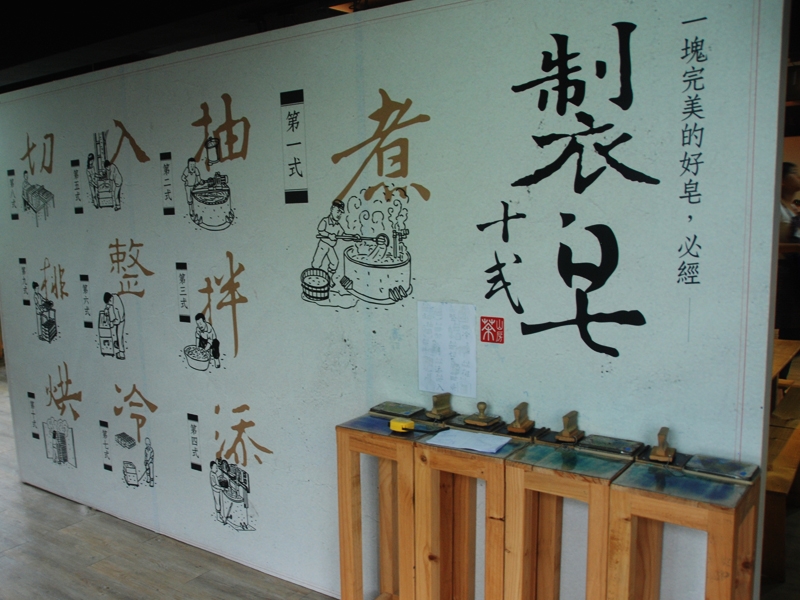 一塊完美的好皂，必經——
製皂
十式
茶山房
第一式
煮
第二式
抽
第三式
拌
第四式
添
第五式
入
第六式
整
第七式
冷
第八式
切
第九式
排
第十式
烘